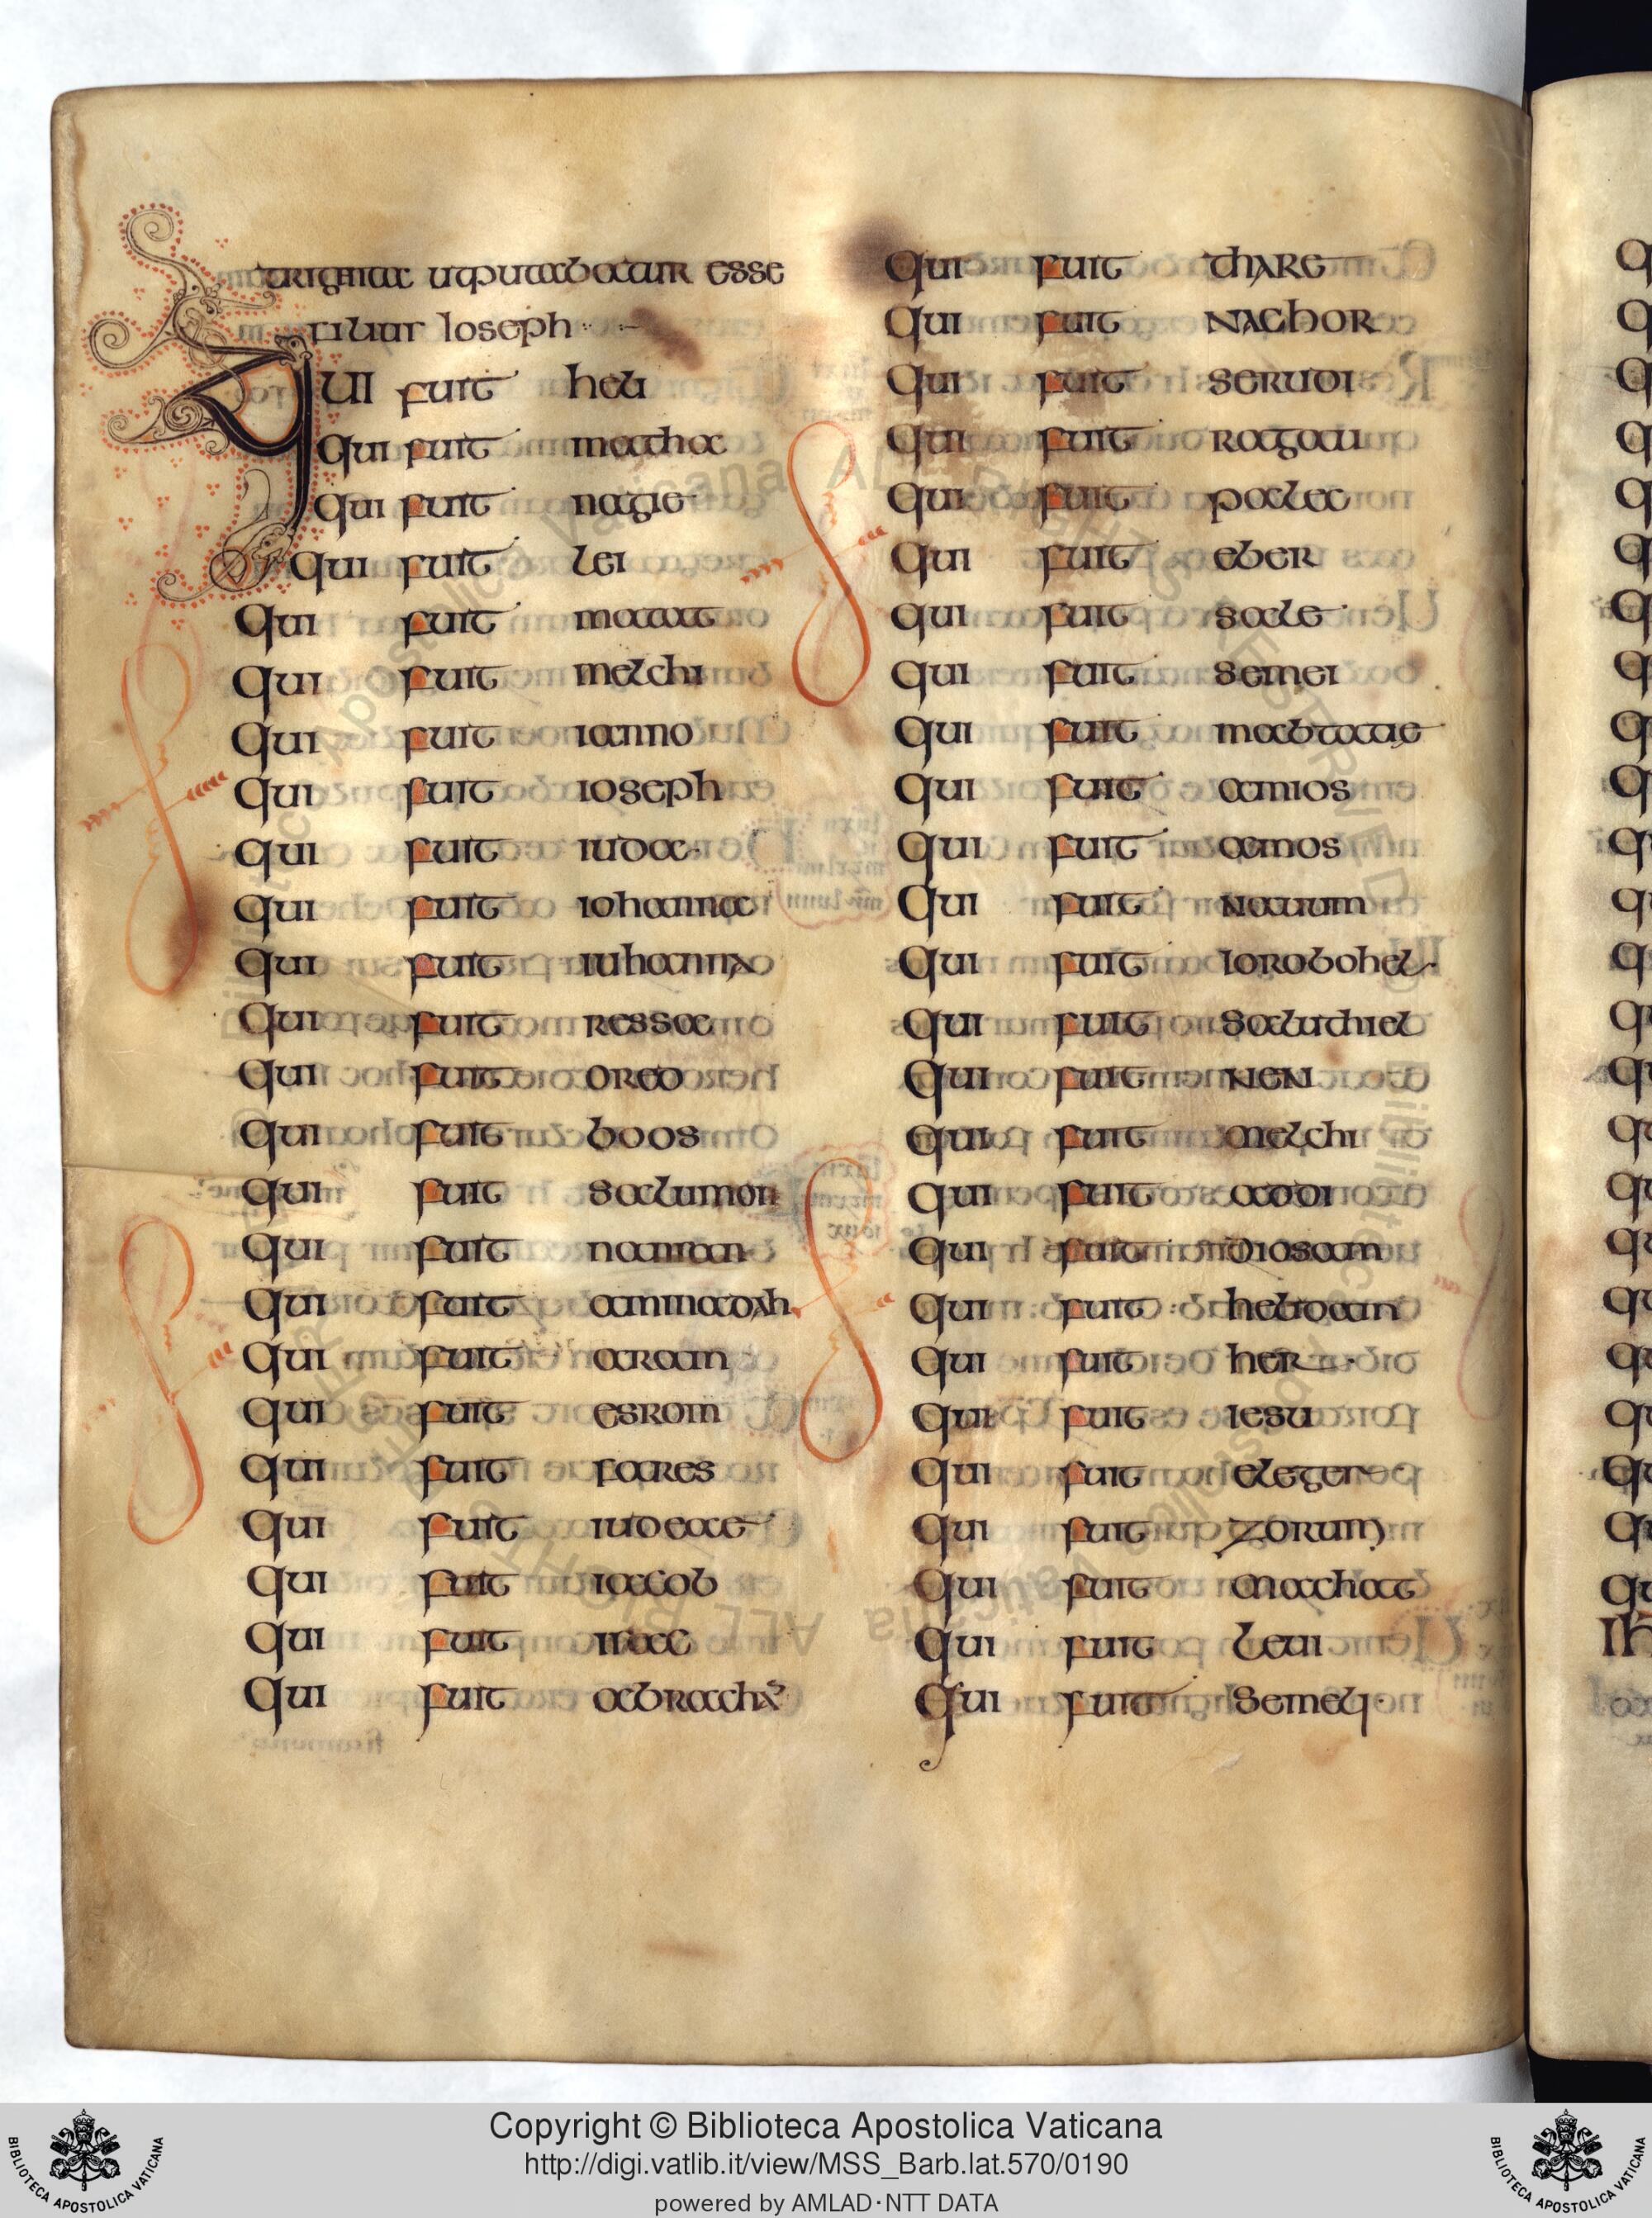 triginta utputabatur esse
filiur Ioseph
QUI fuit heli
qui fuit matha
qui fuit nagie
qui fuit lei
qui fuit matat
qui fuit melchi
qui fuit ianno
qui fuit ioseph
qui fuit iuda
qui fuit iohanna
qui fuit iuhanna
qui fuit ressa
qui fuit oreo
qui fuit boos
qui fuit salumon
qui fuit naman
qui fuit aminadah
qui fuit aram
qui fuit esrom
qui fuit fares
qui fuit iudeae
qui fuit iacob
qui fuit
qui fuit abracha
qui fuit thare
qui fuit nachor
qui fuit serudi
qui fuit ragau
qui fuit palec
qui fuit eber
qui fuit sale
qui fuit semei
qui fuit mabtatie
qui fuit amos
qui fuit amos
qui fuit naum
qui fuit iorobohel
qui fuit saluthiel
qui fuit nen
qui fuit melchi
qui fuit addi
qui fuit diosam
qui fuit heldoan
qui fuit her
qui fuit iesu
qui fuit elezer
qui fuit zorum
qui fuit machat
qui fuit levi
qui fuit semeli
Copyright © Biblioteca Apostolica Vaticana
http://digi.vatlib.it/view/MSS_Barb.lat.570/0190
powered by AMLAD·NTT DATA
BIBLIOTECA APOSTOLICA VATICANA
BIBLIOTECA APOSTOLICA VATICANA